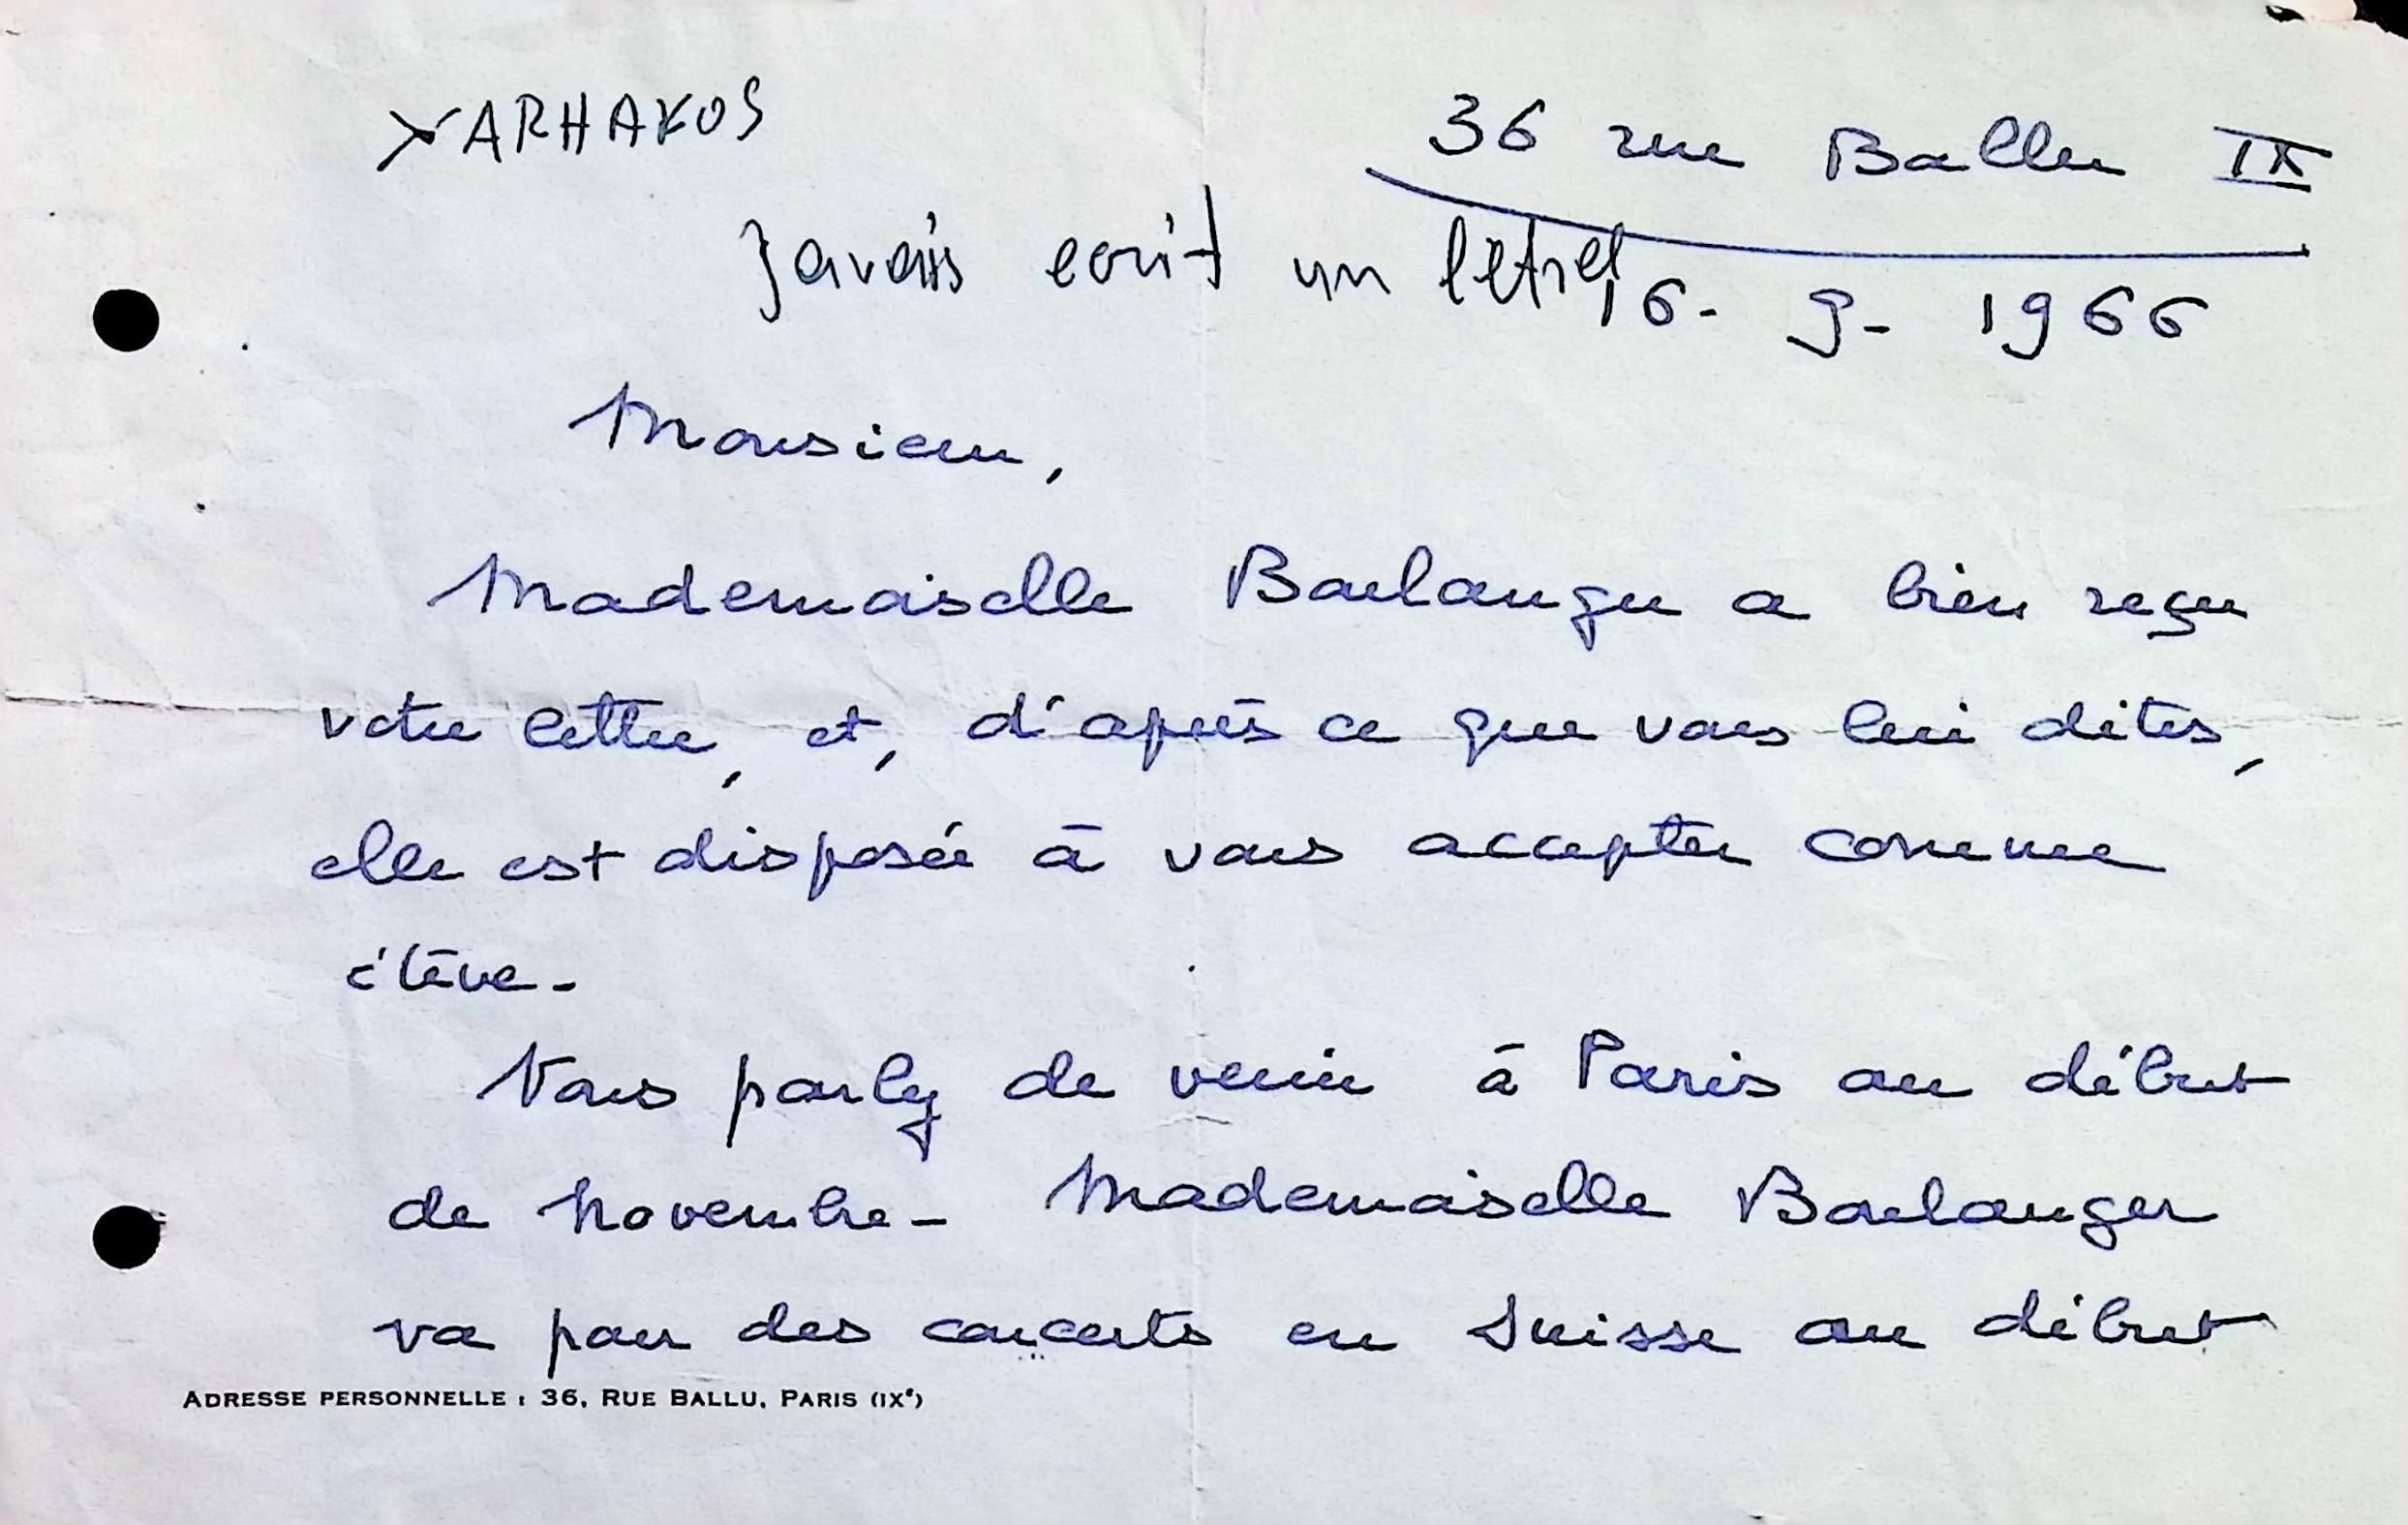 XARHAKOS
36 rue Ballu IX
Javais ecrit un letrel
16- 9- 1966
Monsieur,
Mademoiselle Boulanger a bien reçu
votre lettre, et, d'après ce que vous lui dites,
elle est disposée à vous accepter comme
élève-
Vous parlez de venir à Paris au début
de Novembre- Mademoiselle Boulanger
va pour des concerts en Suisse au début
ADRESSE PERSONNELLE : 36, RUE BALLU, PARIS (IXe)